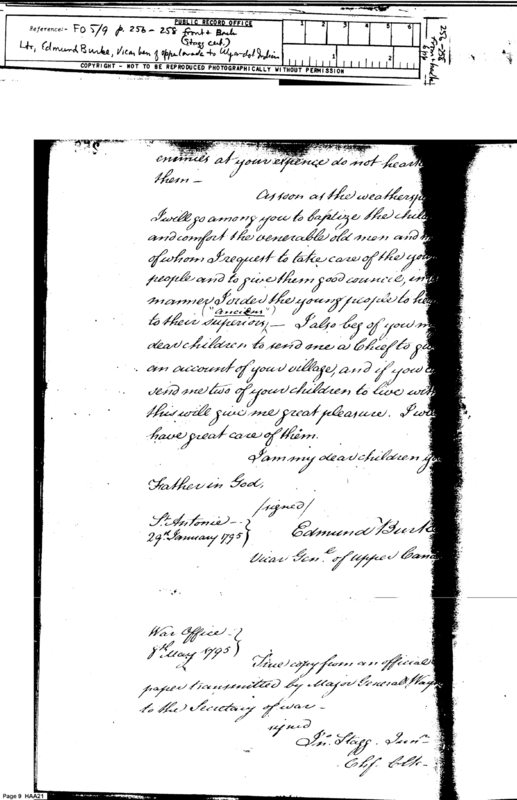 PUBLIC RECORD OFFICE
1 2 3 4 5 6
Reference:- FO 5/9 p. 256 - 258 front & Back
(Stagg cert.)
Ltr, Edmund Burke, Vicar Gen of upper Canada to Wyandot Indians
1 2
COPYRIGHT - NOT TO BE REPRODUCED PHOTOGRAPHICALLY WITHOUT PERMISSION
256 - 258
enemies at your expence do not heark
them -
As soon as the weather
I will go among you to baptize the chil
and comfort the venerable old men and
of whom I request to take care of the you
people and to give them good council, in
manner I order the young people to
("ancients")
to their superiors, - I also beg of you m
dear children to send me a Chief to gi
an account of your village, and if you
send me two of your children to live wit
this will give me great pleasure. I wi
have great care of them.
I am my dear children y
Father in God,
/signed/
St Antonie -
29th January 1795 }
Edmund Burke
Vicar Genl of upper Cana
War Office -
8th May 1795 }
True copy from an official
paper transmitted by Major General Wayn
to the Secretary of war -
signed
Jno Stagg Junr
Chf. Clk -
Page 9 HAA21